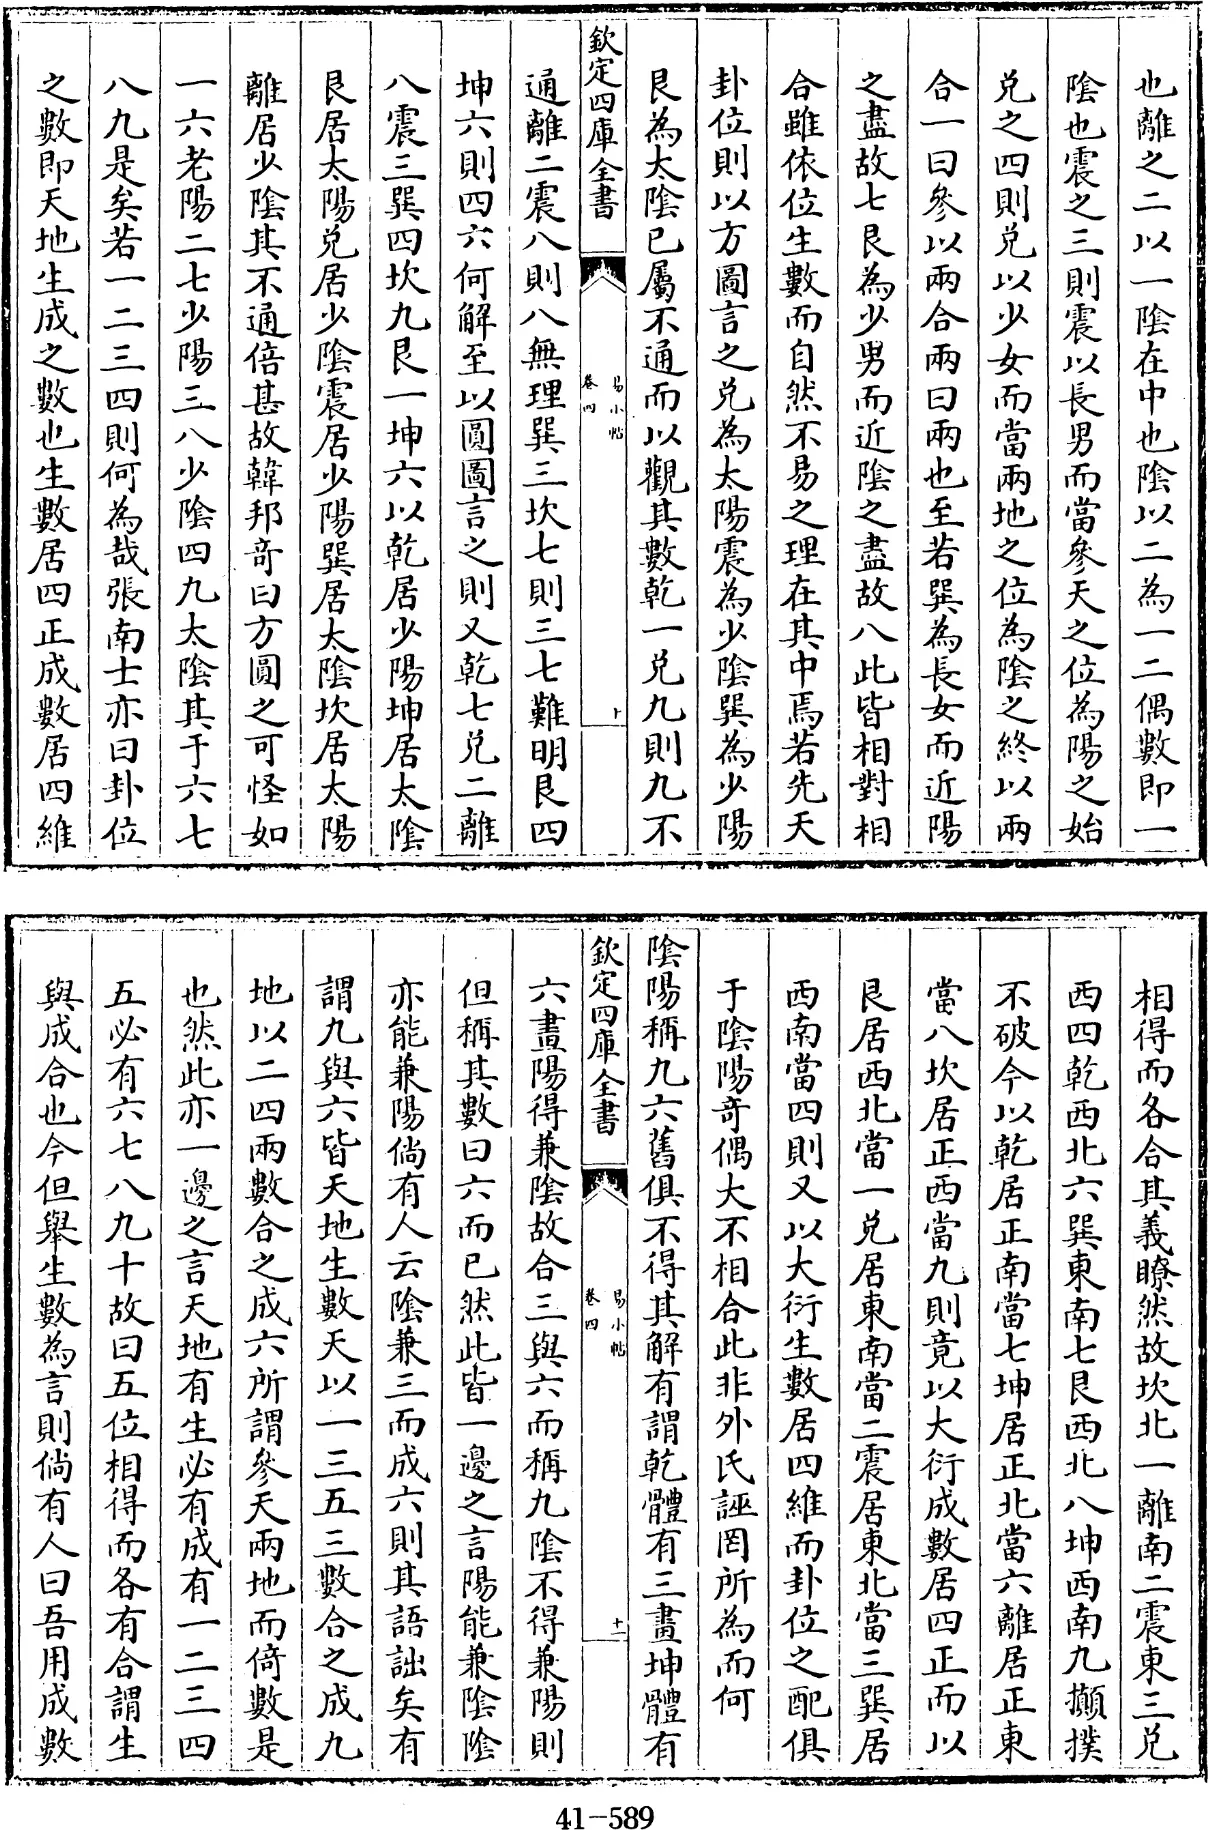 也離之二以一陰在中也陰以二為一二偶數即一
陰也震之三則震以長男而當參天之位為陽之始
兑之四則兑以少女而當兩地之位為陰之終以兩
合一曰參以兩合兩曰兩也至若巽為長女而近陽
之盡故七艮為少男而近陰之盡故八此皆相對相
合雖依位生數而自然不易之理在其中焉若先天
卦位則以方圖言之兑為太陽震為少陰巽為少陽
艮為太陰已屬不通而以觀其數乾一兑九則九不
欽定四庫全書
易小帖
卷四
十
通離二震八則八無理巽三坎七則三七難明艮四
坤六則四六何解至以圓圖言之則又乾七兑二離
八震三巽四坎九艮一坤六以乾居少陽坤居太陰
艮居太陽兑居少陰震居少陽巽居太陰坎居太陽
離居少陰其不通倍甚故韓邦奇曰方圓之可怪如
一六老陽二七少陽三八少陰四九太陰其于六七
八九是矣若一二三四則何為哉張南士亦曰卦位
之數即天地生成之數也生數居四正成數居四維
相得而各合其義瞭然故坎北一離南二震東三兑
西四乾西北六巽東南七艮西北八坤西南九攧撲
不破今以乾居正南當七坤居正北當六離居正東
當八坎居正西當九則竟以大衍成數居四正而以
艮居西北當一兑居東南當二震居東北當三巽居
西南當四則又以大衍生數居四維而卦位之配俱
于陰陽奇偶大不相合此非外氏誣罔所為而何
陰陽稱九六舊俱不得其解有謂乾體有三畫坤體有
欽定四庫全書
易小帖
卷四
十一
六畫陽得兼陰故合三與六而稱九陰不得兼陽則
但稱其數曰六而已然此皆一邊之言陽能兼陰陰
亦能兼陽倘有人云陰兼三而成六則其語詘矣有
謂九與六皆天地生數天以一三五三數合之成九
地以二四兩數合之成六所謂參天兩地而倚數是
也然此亦一邊之言天地有生必有成有一二三四
五必有六七八九十故曰五位相得而各有合謂生
與成合也今但舉生數為言則倘有人曰吾用成數
41-589